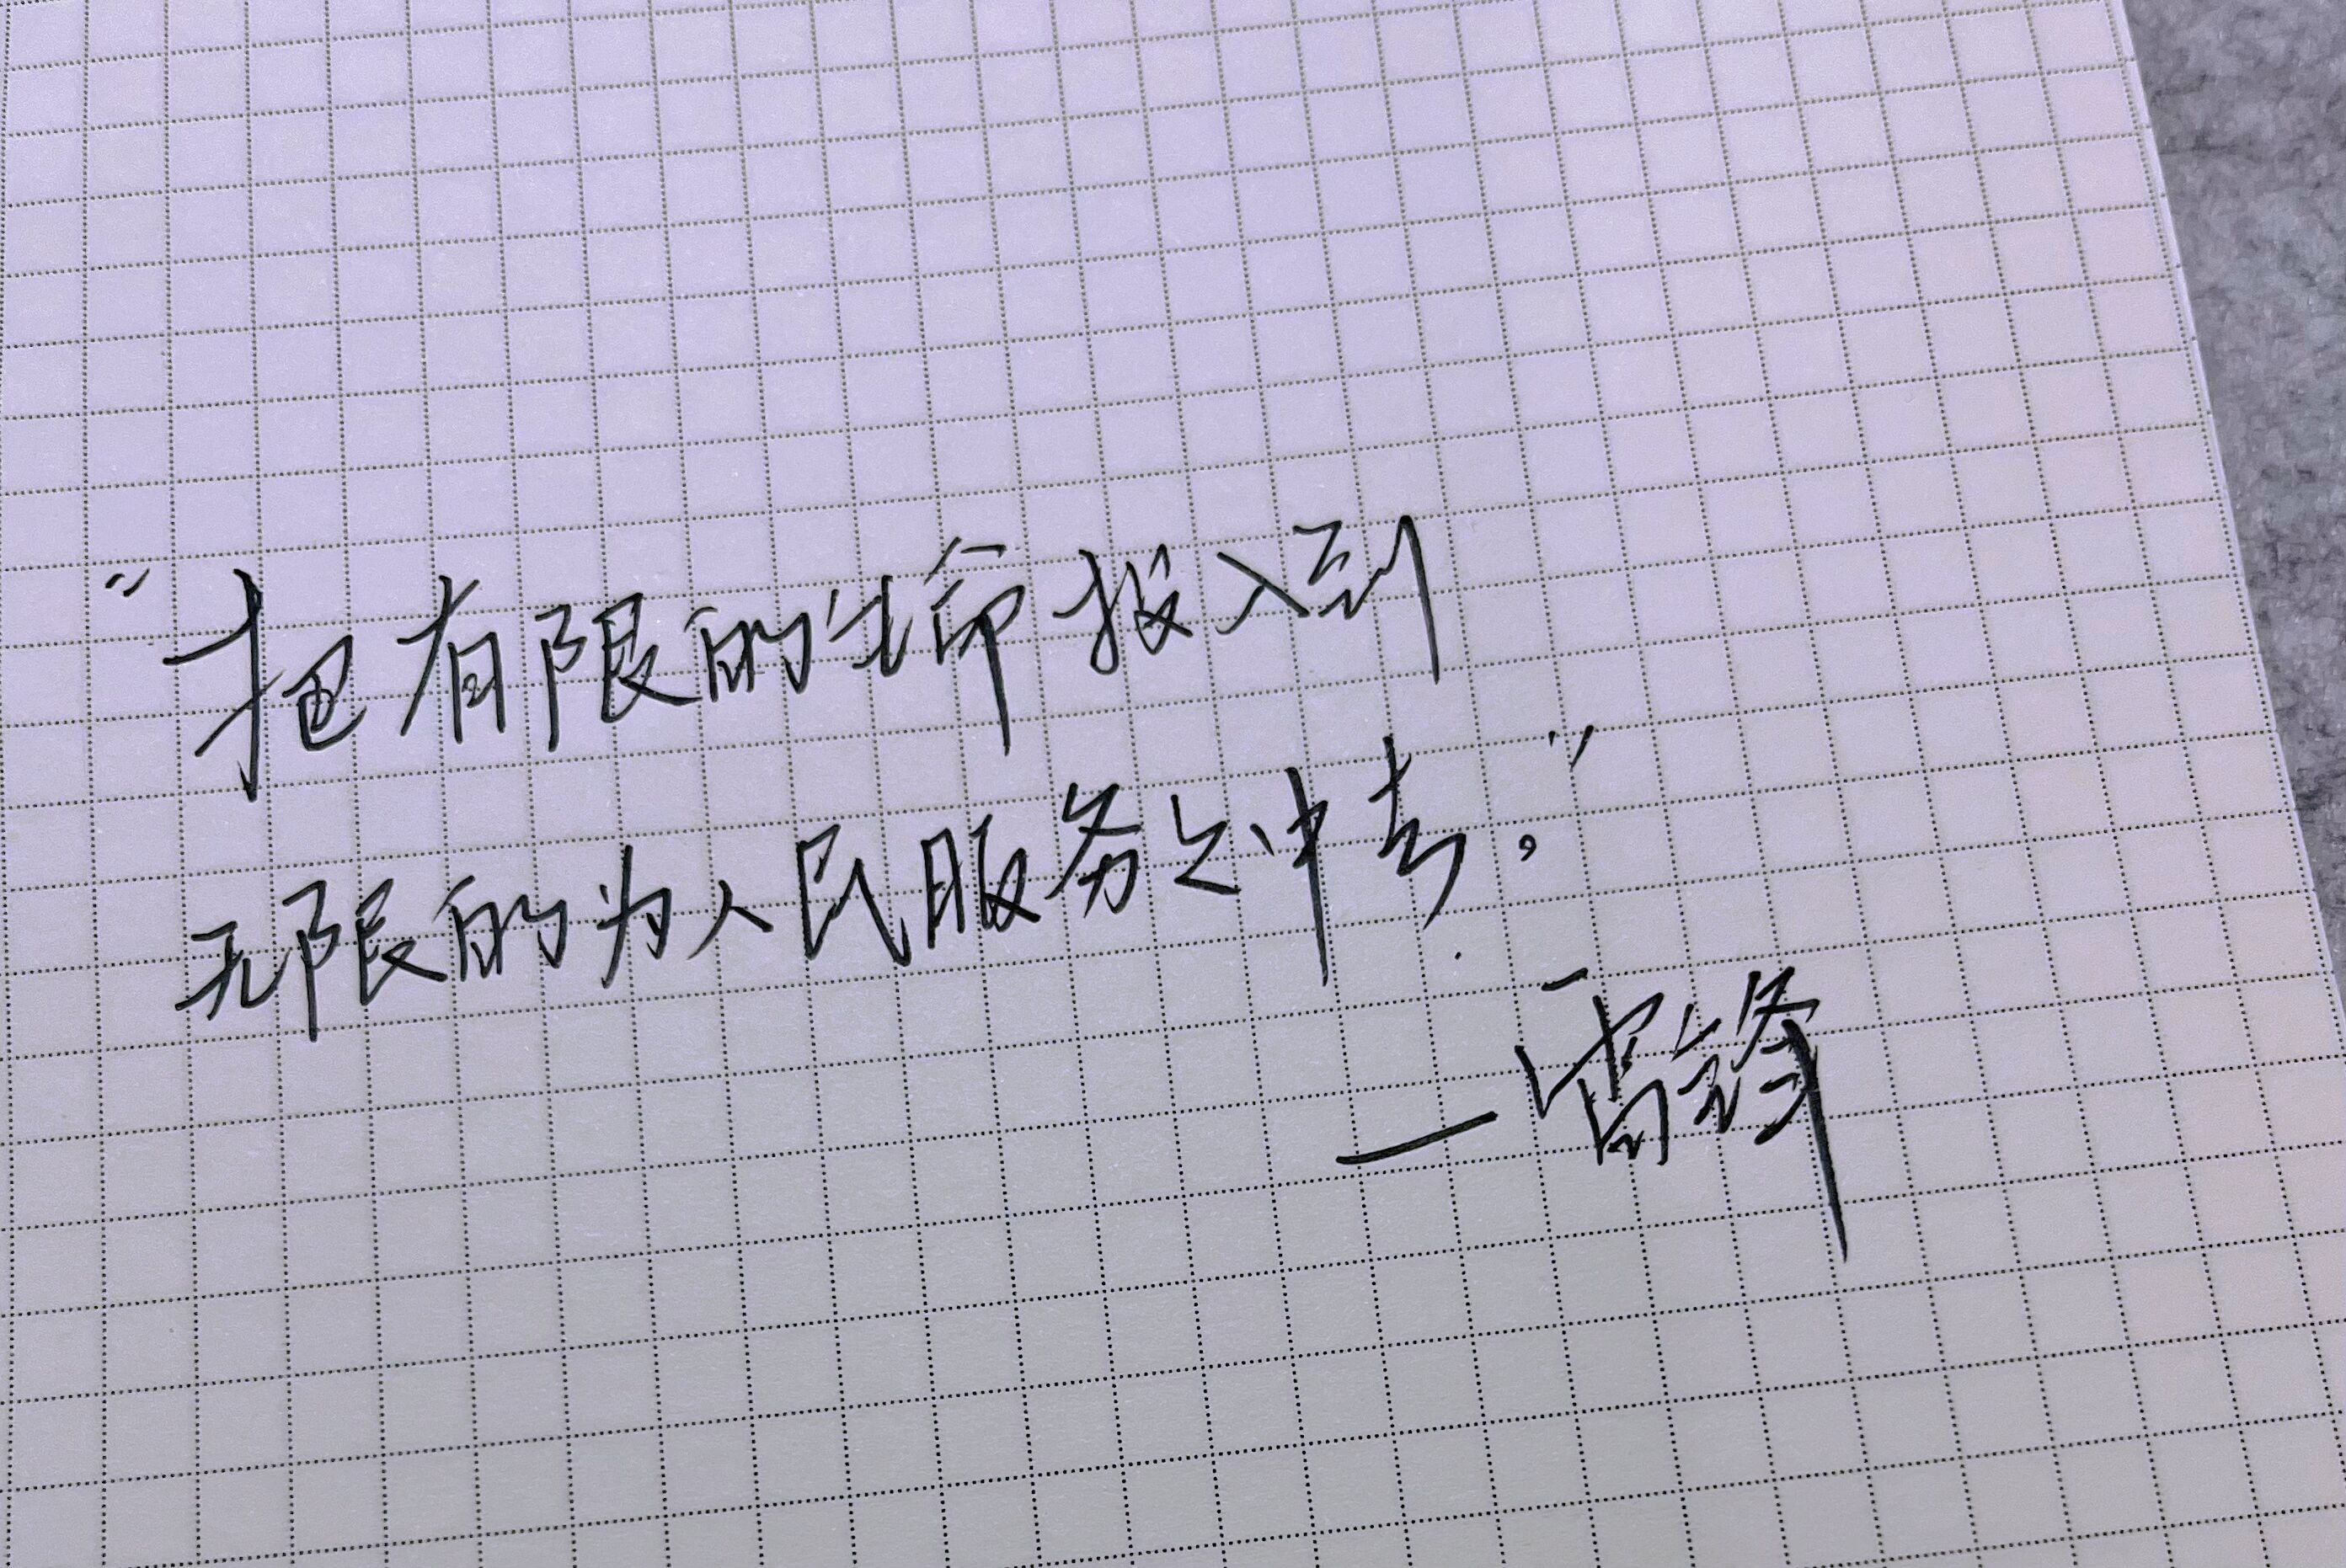 “把有限的生命投入到
无限的为人民服务之中去。”
—雷锋